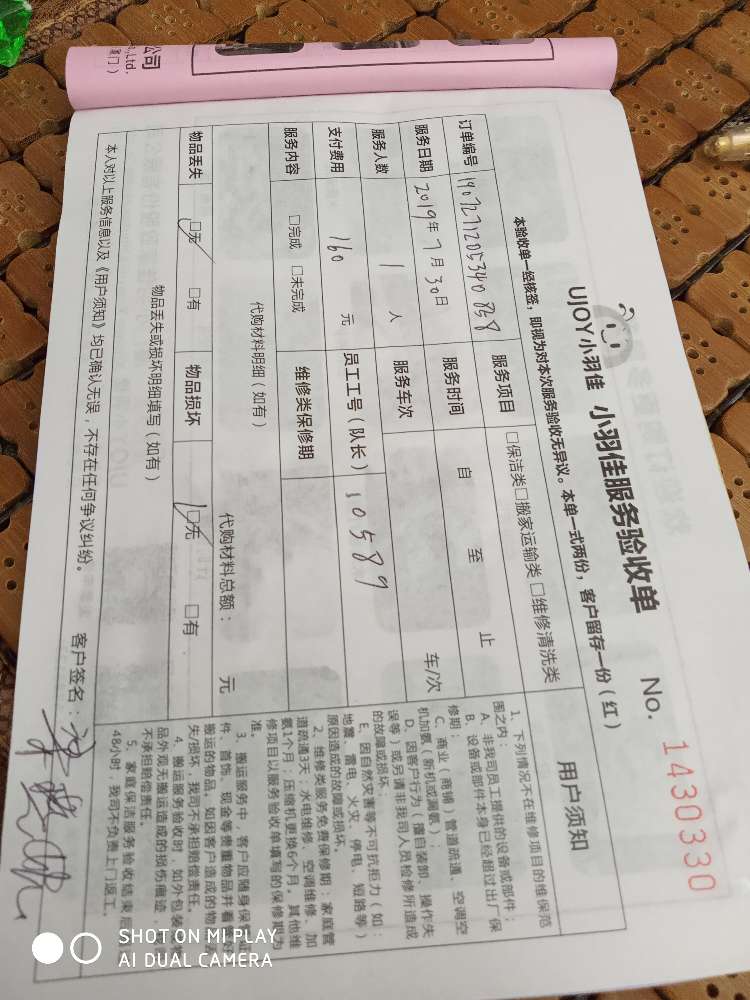 公司
Ltd.
UJOY小羽佳 小羽佳服务验收单 No. 1430330
本验收单一经核签，即视为对本次服务验收无异议。本单一式两份，客户留存一份（红）
订单编号 服务项目 □保洁类□搬家运输类 □维修清洗类
服务日期 2019年7月30日 服务时间 自 至 止
服务人数 1 人 服务车次 车/次
支付费用 160 元 员工工号（队长） 10589
服务内容 □完成 □未完成 维修类保修期
代购材料明细（如有） 代购材料总额： 元
物品丢失 □无 □有 物品损坏 □无 □有
物品丢失或损坏明细填写（如有）
本人对以上服务信息以及《用户须知》均已确认无误，不存在任何争议纠纷。
客户签名：
用户须知
1、下列情况不在维修项目的维保范
围之内：
A、非我司员工提供的设备或部件；
B、设备或部件本身已经超过出厂保
修期；
C、商业（商铺）管道疏通、空调空
机加氨（新机或漏氨）；
D、因客户行为（擅自装卸、操作失
误等）或另请非我司人员检修所造成
的故障或损坏；
E、因自然灾害等不可抗拒力（如：
地震、雷电、火灾、停电、短路等）
原因造成的故障或损坏。
2、维修类服务免费保修期：家庭管
道疏通3天；水电维修、空调维修、加
氨1个月；压缩机更换6个月，其他维
修项目以服务验收单填写的保修期为
准。
3、搬运服务中，客户应随身保
件、首饰、现金等贵重物品并看
搬运的物品。如因客户造成的物
失/损坏，我司不承担赔偿责任。
4、搬运服务验收时，如外包装
品外观无搬运造成的损伤痕迹，
不承担赔偿责任。
5、家庭保洁服务验收结束后
48小时，我司不负责上门返工。
SHOT ON MI PLAY
AI DUAL CAMERA